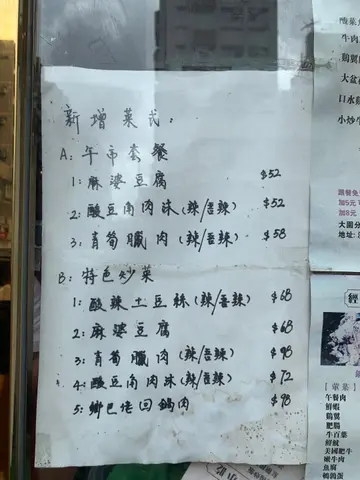 新增菜式:
A: 午市套餐
1: 麻婆豆腐 $52
2: 酸豆角肉沫(辣/唔辣) $52
3: 青筍臘肉(辣/唔辣) $58
B: 特色炒菜
1: 酸辣土豆絲(辣/唔辣) $68
2: 麻婆豆腐 $68
3: 青筍臘肉(辣/唔辣) $98
4: 酸豆角肉沫(辣/唔辣) $72
5: 鄉巴佬回鍋肉 $98
牛肉
鷄翼
大盆
口水
小炒牛
跟餐免
加5元
加8元
大圍分
地址:
經
【葷菜】
午餐肉
鮮蝦
鷄翼
肥腸
牛百葉
鮮魷
嫩牛肉
美國肥牛
魚腐
鵪鶉蛋